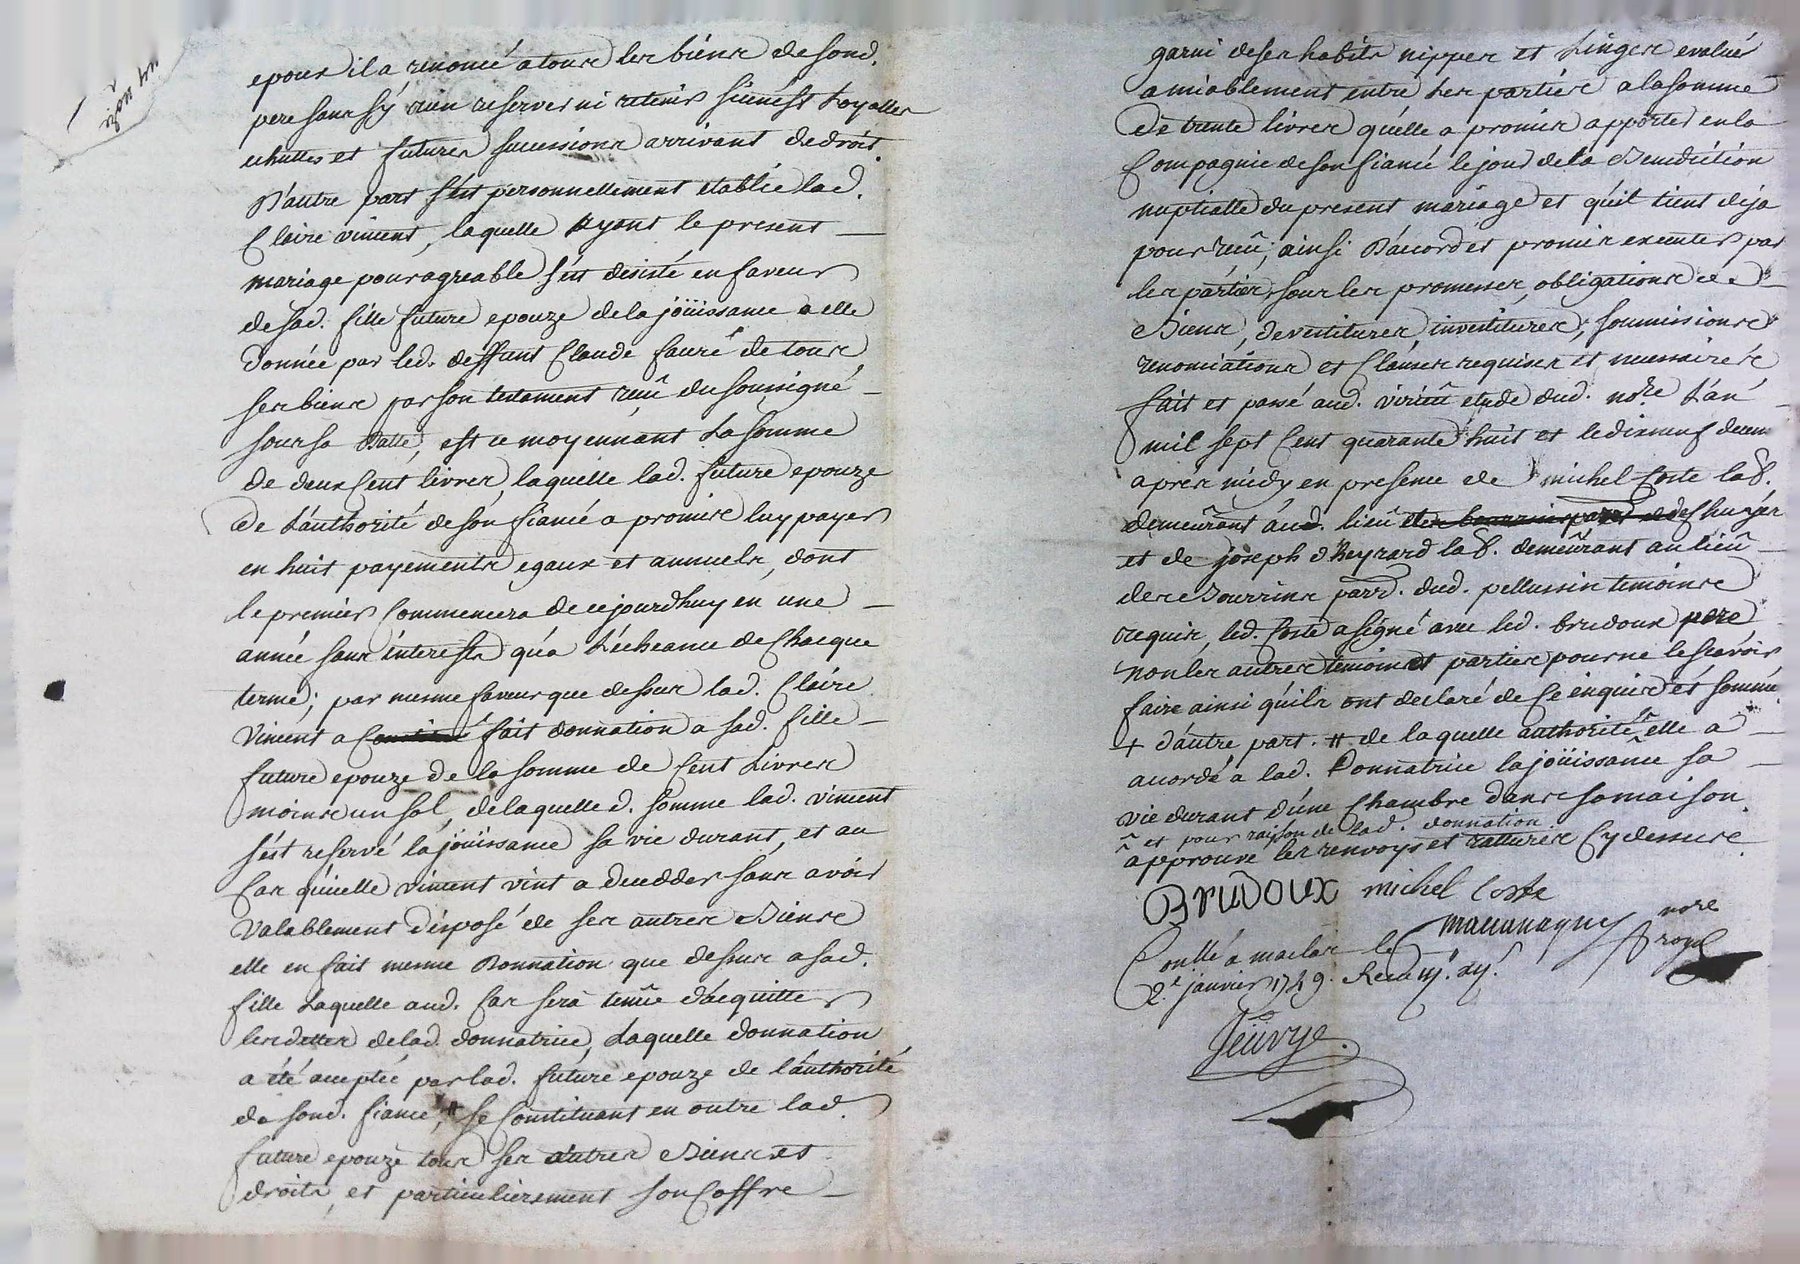 epoux il a renoncé a tous les biens de sond.
pere sans sÿ rien reserver ni retenir si n'est Loyalles
echuttes et futures successions arrivant de droit.
D'autre part s'est personnellement etablie lad.
Claire vincent, laquelle Ayant le present
mariage pour agreable s'est desisté en faveur
de sad. fille future epouze de la joüissance a elle
donnée par led. deffunt Claude fauré de tous
ses biens par son testament reçu du soussigné
sous sa Datte, est ce moyennant La somme
de deux Cent livres, laquelle lad. future epouze
de L'authorité de son fiancé a promis luy payer
en huit payements egaux et annuels, dont
le premier Commencera de ce jourdhuy en une
année sans interests qu'a L'écheance de Chacque
terme; par mesme faveur que dessus lad. Claire
Vincent a fait donnation a sad. fille
future epouze de la somme de Cent Livres
moins un sol, de laquelle d. somme lad. vincent
s'est reservé la joüissance sa vie durant, et au
Cas qu'icelle vincent vint a decedder sans avoir
Valablement disposé de ses autres Biens
elle en fait mesme Donnation que dessus a sad.
fille Laquelle aud. Cas sera tenüe d'acquitter
les dettes de lad. donnatrice, Laquelle donnation
a été acceptée par lad. future epouze de l'authorité
de sond. fiancé, # se Constituant en outre lad.
future epouze tous ses autres Biens et
droits, et particulierement son Coffre
garni de ses habits nippes et Linges evalué
amiablement entre Les parties a la somme
De trente livres qu'elle a promis apporter en la
Compagnie de son fiancé le jour de la Benediction
nuptialle du present mariage et qu'il tient deja
pour reçu; ainsi D'accord et promis executer par
les parties, sous les promesses, obligations de
Biens, devestitures, investitures, soumissions
renonciations et Clauses requises et necessaires
fait et passé aud. virieu etude dud. nore L'an
mil sept Cent quarante huit et le dixneuf decem
apres midy en presence de michel Coste lab.
demeûrant aud. lieu
et de joseph dheyrard lab. demeûrant au lieû
des Bourrins parr. dud. pellussin temoins
requis, led. Coste a signé avec led. brudoux pere
non les autres temoin et parties pour ne le scavoir
faire ainsi qu'ils ont declaré de Ce enquis et sommé
+ d'autre part. # de laquelle authorité elle a
accordé a lad. Donnatrice la joüissance sa
vie durant d'une Chambre dans sa maison
et pour raison de lad. donnation
approuvé les renvoys et ratture Cy dessus.
BRUDOUX michel Coste
nore
royal
Conllé a maclas le
2e janvier 1749. Recu